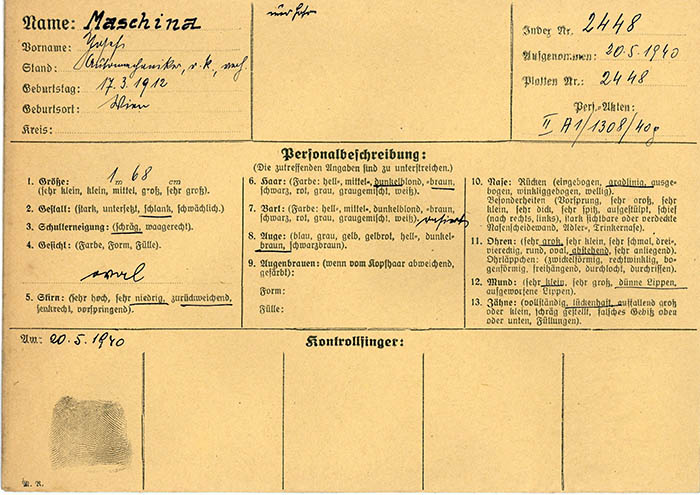 Name: Maschina
Vorname: Josef
Stand: Automechaniker, r.k., verh.
Geburtstag: 17.3.1912
Geburtsort: Wien
Kreis:
Index Nr. 2448
Aufgenommen: 20.5.1940
Platten Nr.: 2448
Pers.-Akten:
II A1/1308/40g
Personalbeschreibung:
(Die zutreffenden Angaben sind zu unterstreichen.)
1. Größe: 1 m 68 cm
(sehr klein, klein, mittel, groß, sehr groß).
2. Gestalt: (stark, untersetzt, schlank, schwächlich).
3. Schulterneigung: (schräg, waagerecht).
4. Gesicht: (Farbe, Form, Fülle).
oval
5. Stirn: (sehr hoch, sehr niedrig, zurückweichend,
senkrecht, vorspringend).
6. Haar: (Farbe: hell-, mittel-, dunkelblond, -braun,
schwarz, rot, grau, graugemischt, weiß).
7. Bart: (Farbe: hell-, mittel-, dunkelblond, -braun,
schwarz, rot, grau, graugemischt, weiß). rasiert
8. Auge: (blau, grau, gelb, gelbrot, hell-, dunkel-
braun, schwarzbraun).
9. Augenbrauen: (wenn vom Kopfhaar abweichend,
gefärbt):
Form:
Fülle:
10. Nase: Rücken (eingebogen, gradlinig, ausge-
bogen, winkliggebogen, wellig).
Besonderheiten (Vorsprung, sehr groß, sehr
klein, sehr dick, sehr spitz, aufgestülpt, schief
(nach rechts, links), stark sichtbare oder verdeckte
Nasenscheidewand, Adler-, Trinkernase).
11. Ohren: (sehr groß, sehr klein, sehr schmal, drei-
viereckig, rund, oval, abstehend, sehr anliegend).
Ohrläppchen: (zwickelförmig, rechtwinklig, bo-
genförmig, freihängend, durchlocht, durchrissen).
12. Mund: (sehr klein, sehr groß, dünne Lippen,
aufgeworfene Lippen).
13. Zähne: (vollständig, lückenhaft, auffallend groß
oder klein, schräg gestellt, falsches Gebiß oben
oder unten, Füllungen).
Am: 20.5.1940
Kontrollfinger:
M. R.